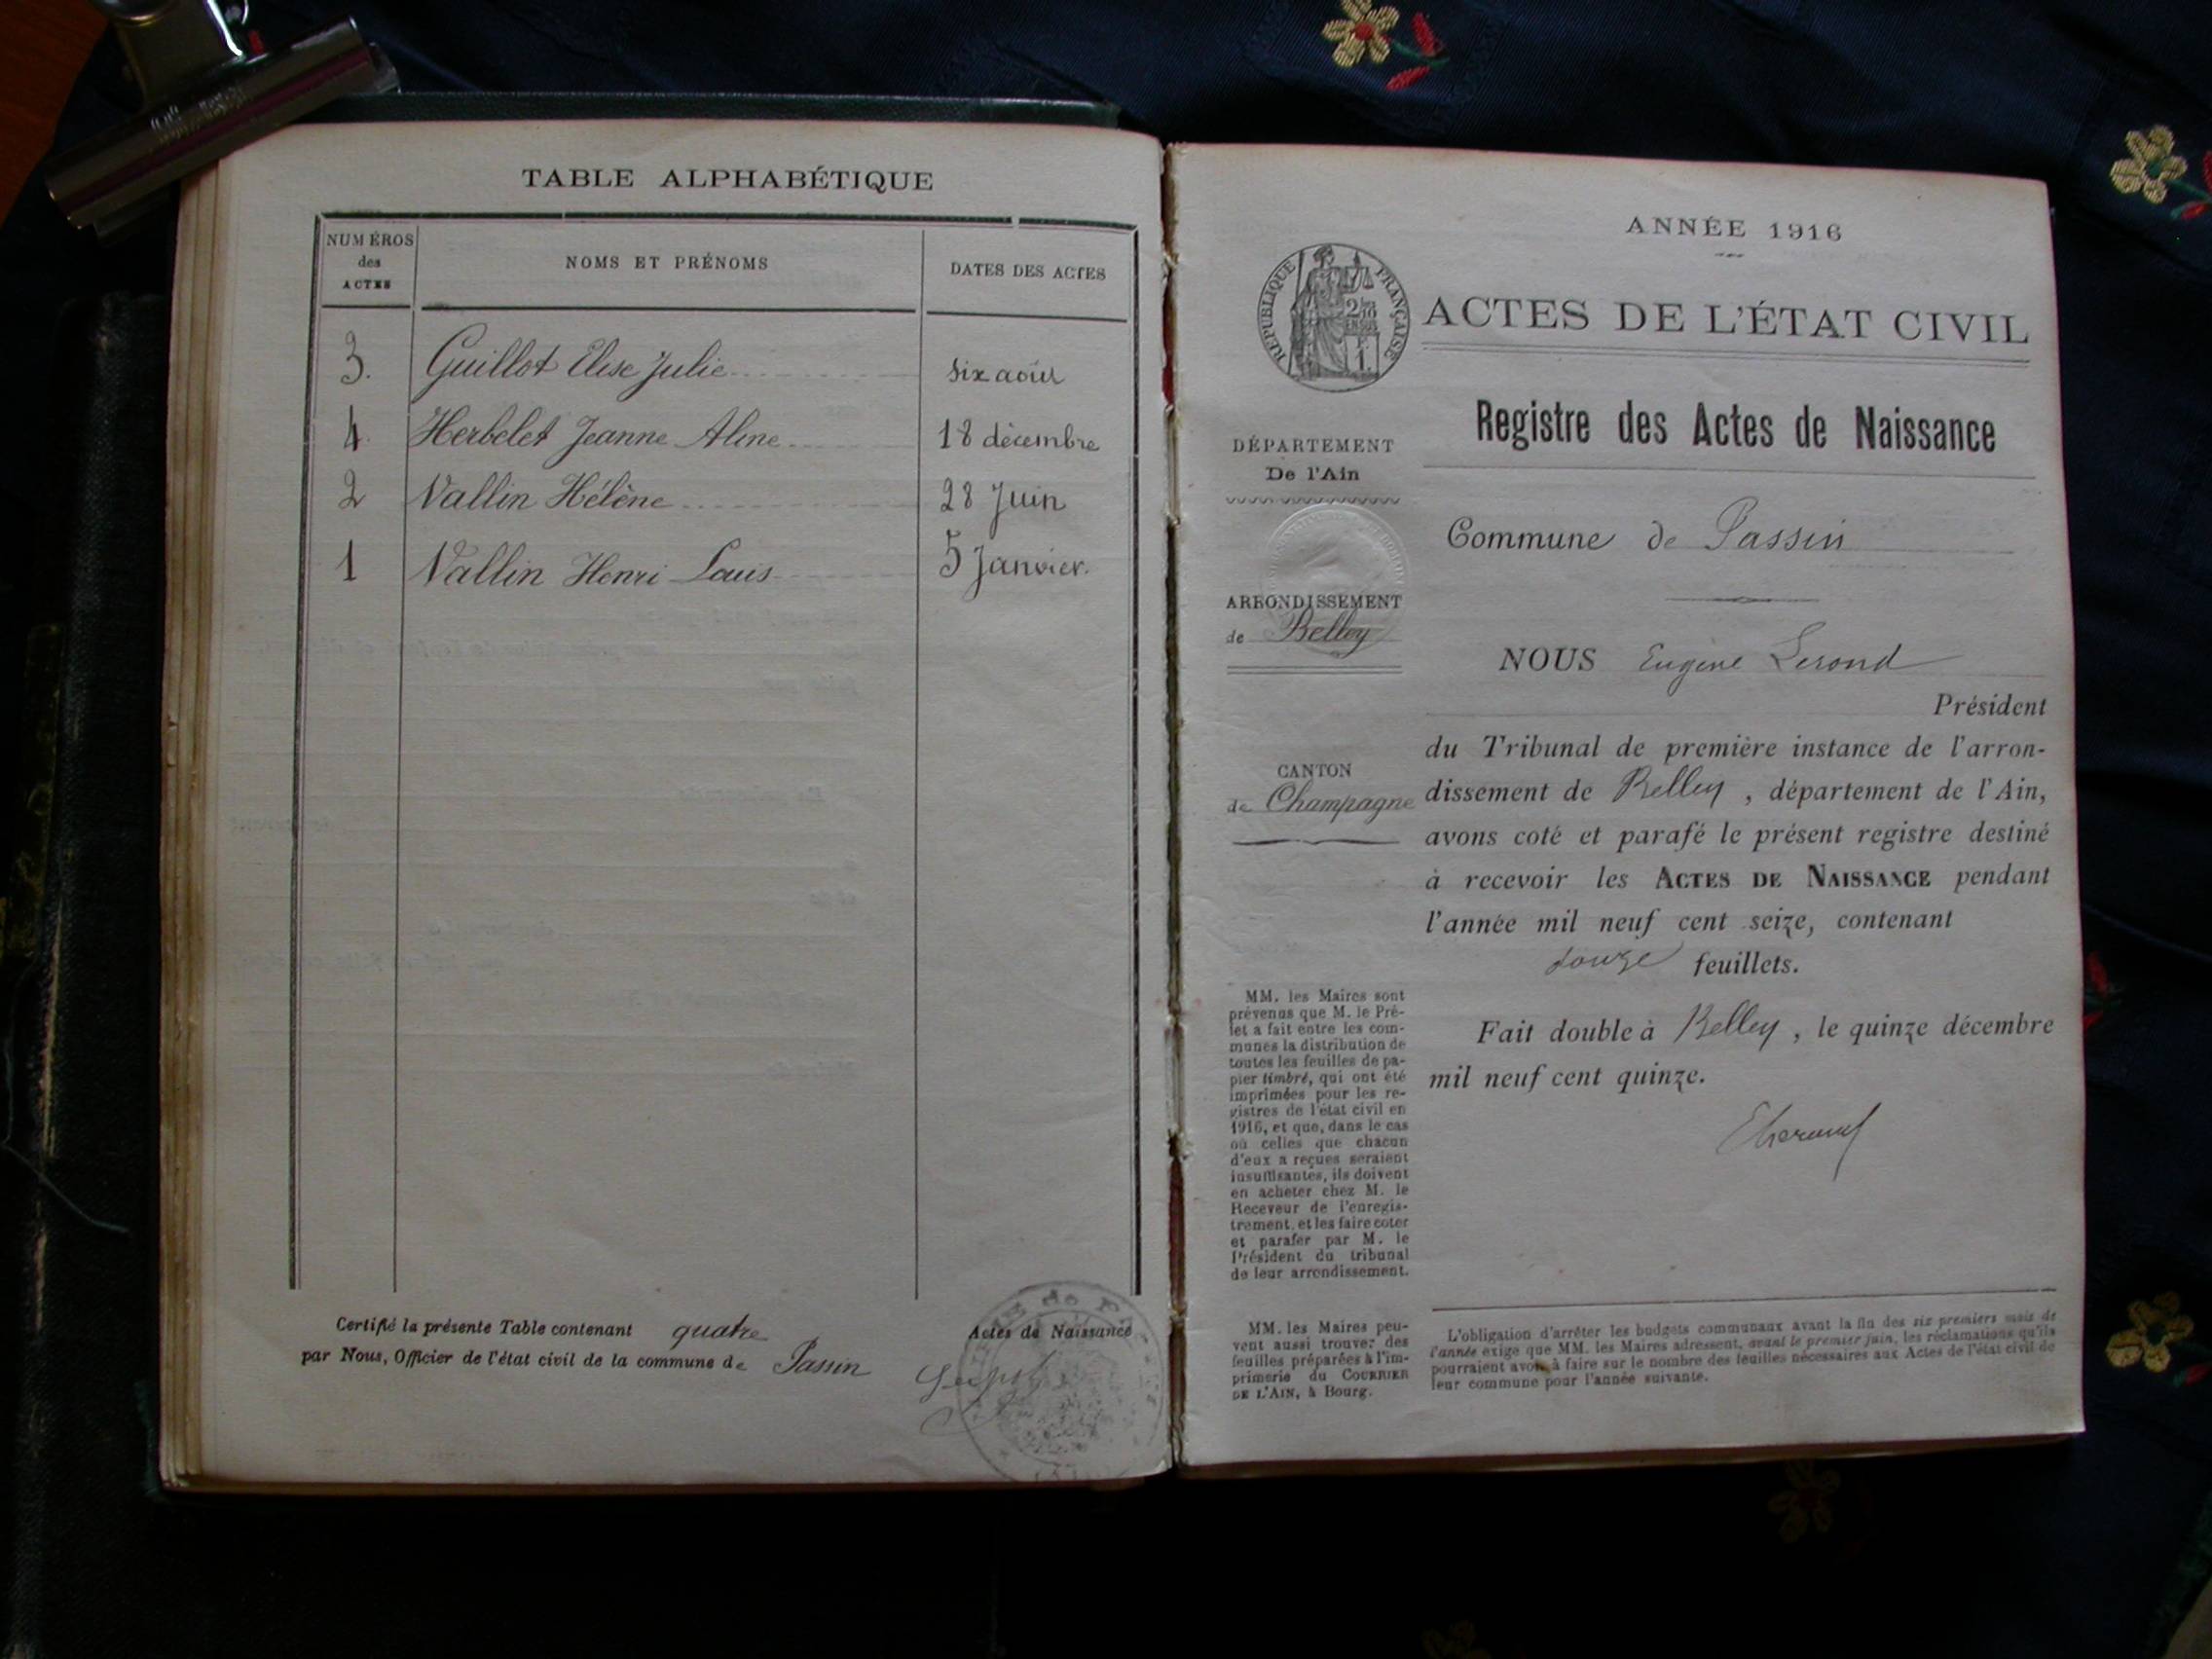 TABLE ALPHABÉTIQUE
NUMÉROS
des
ACTES
NOMS ET PRÉNOMS
DATES DES ACTES
3. Guillot Elise Julie six août
4. Herbelet Jeanne Aline 18 décembre
2 Vallin Hélène 28 Juin
1 Vallin Henri Louis 5 Janvier.
Certifié la présente Table contenant quatre Actes de Naissance
par Nous, Officier de l'état civil de la commune de Passin
ANNÉE 1916
RÉPUBLIQUE FRANÇAISE
ACTES DE L'ÉTAT CIVIL
Registre des Actes de Naissance
DÉPARTEMENT
De l'Ain
Commune de Passin
ARRONDISSEMENT
de Belley
CANTON
de Champagne
NOUS Eugène Lerond
Président
du Tribunal de première instance de l'arron-
dissement de Belley, département de l'Ain,
avons coté et parafé le présent registre destiné
à recevoir les ACTES DE NAISSANCE pendant
l'année mil neuf cent seize, contenant
douze feuillets.
Fait double à Belley, le quinze décembre
mil neuf cent quinze.
MM. les Maires sont
prévenus que M. le Pré-
fet a fait entre les com-
munes la distribution de
toutes les feuilles de pa-
pier timbré, qui ont été
imprimées pour les re-
gistres de l'état civil en
1916, et que, dans le cas
où celles que chacun
d'eux a reçues seraient
insuffisantes, ils doivent
en acheter chez M. le
Receveur de l'enregis-
trement, et les faire coter
et parafer par M. le
Président du tribunal
de leur arrondissement.
MM. les Maires peu-
vent aussi trouver des
feuilles préparées à l'im-
primerie du COURRIER
DE L'AIN, à Bourg.
L'obligation d'arrêter les budgets communaux avant la fin des six premiers mois de
l'année exige que MM. les Maires adressent, avant le premier juin, les réclamations qu'ils
pourraient avoir à faire sur le nombre des feuilles nécessaires aux Actes de l'état civil de
leur commune pour l'année suivante.